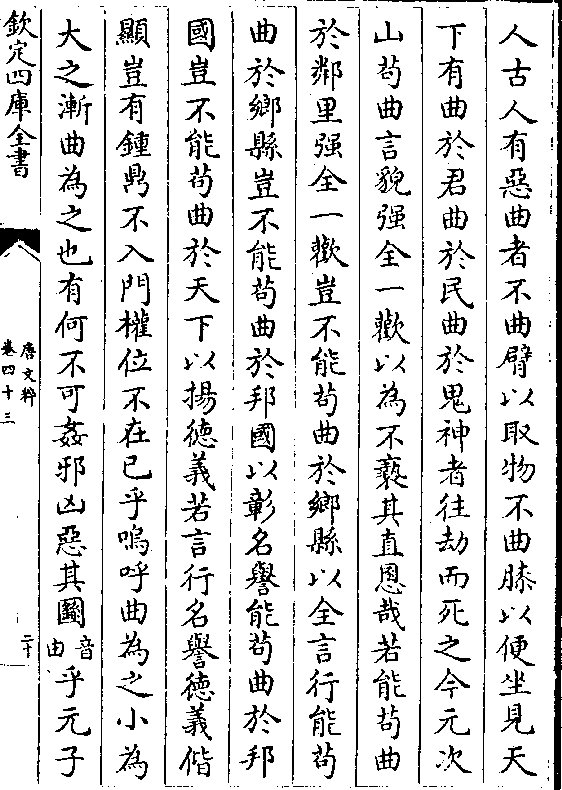 人古人有惡曲者不曲臂以取物不曲膝以便坐見天
下有曲於君曲於民曲於鬼神者往劫而死之今元次
山苟曲言貌强全一歡以為不䙝其直恩哉若能苟曲
於鄰里强全一歡豈不能苟曲於鄉縣以全言行能苟
曲於鄉縣豈不能苟曲於邦國以彰名譽能苟曲於邦
國豈不能苟曲於天下以揚德義若言行名譽德義偕
顯豈有鍾鼎不入門權位不在已乎嗚呼曲為之小為
大之漸曲為之也有何不可姦邪凶惡其圝音由乎元子
欽定四庫全書
唐文粹
卷四十三
二十